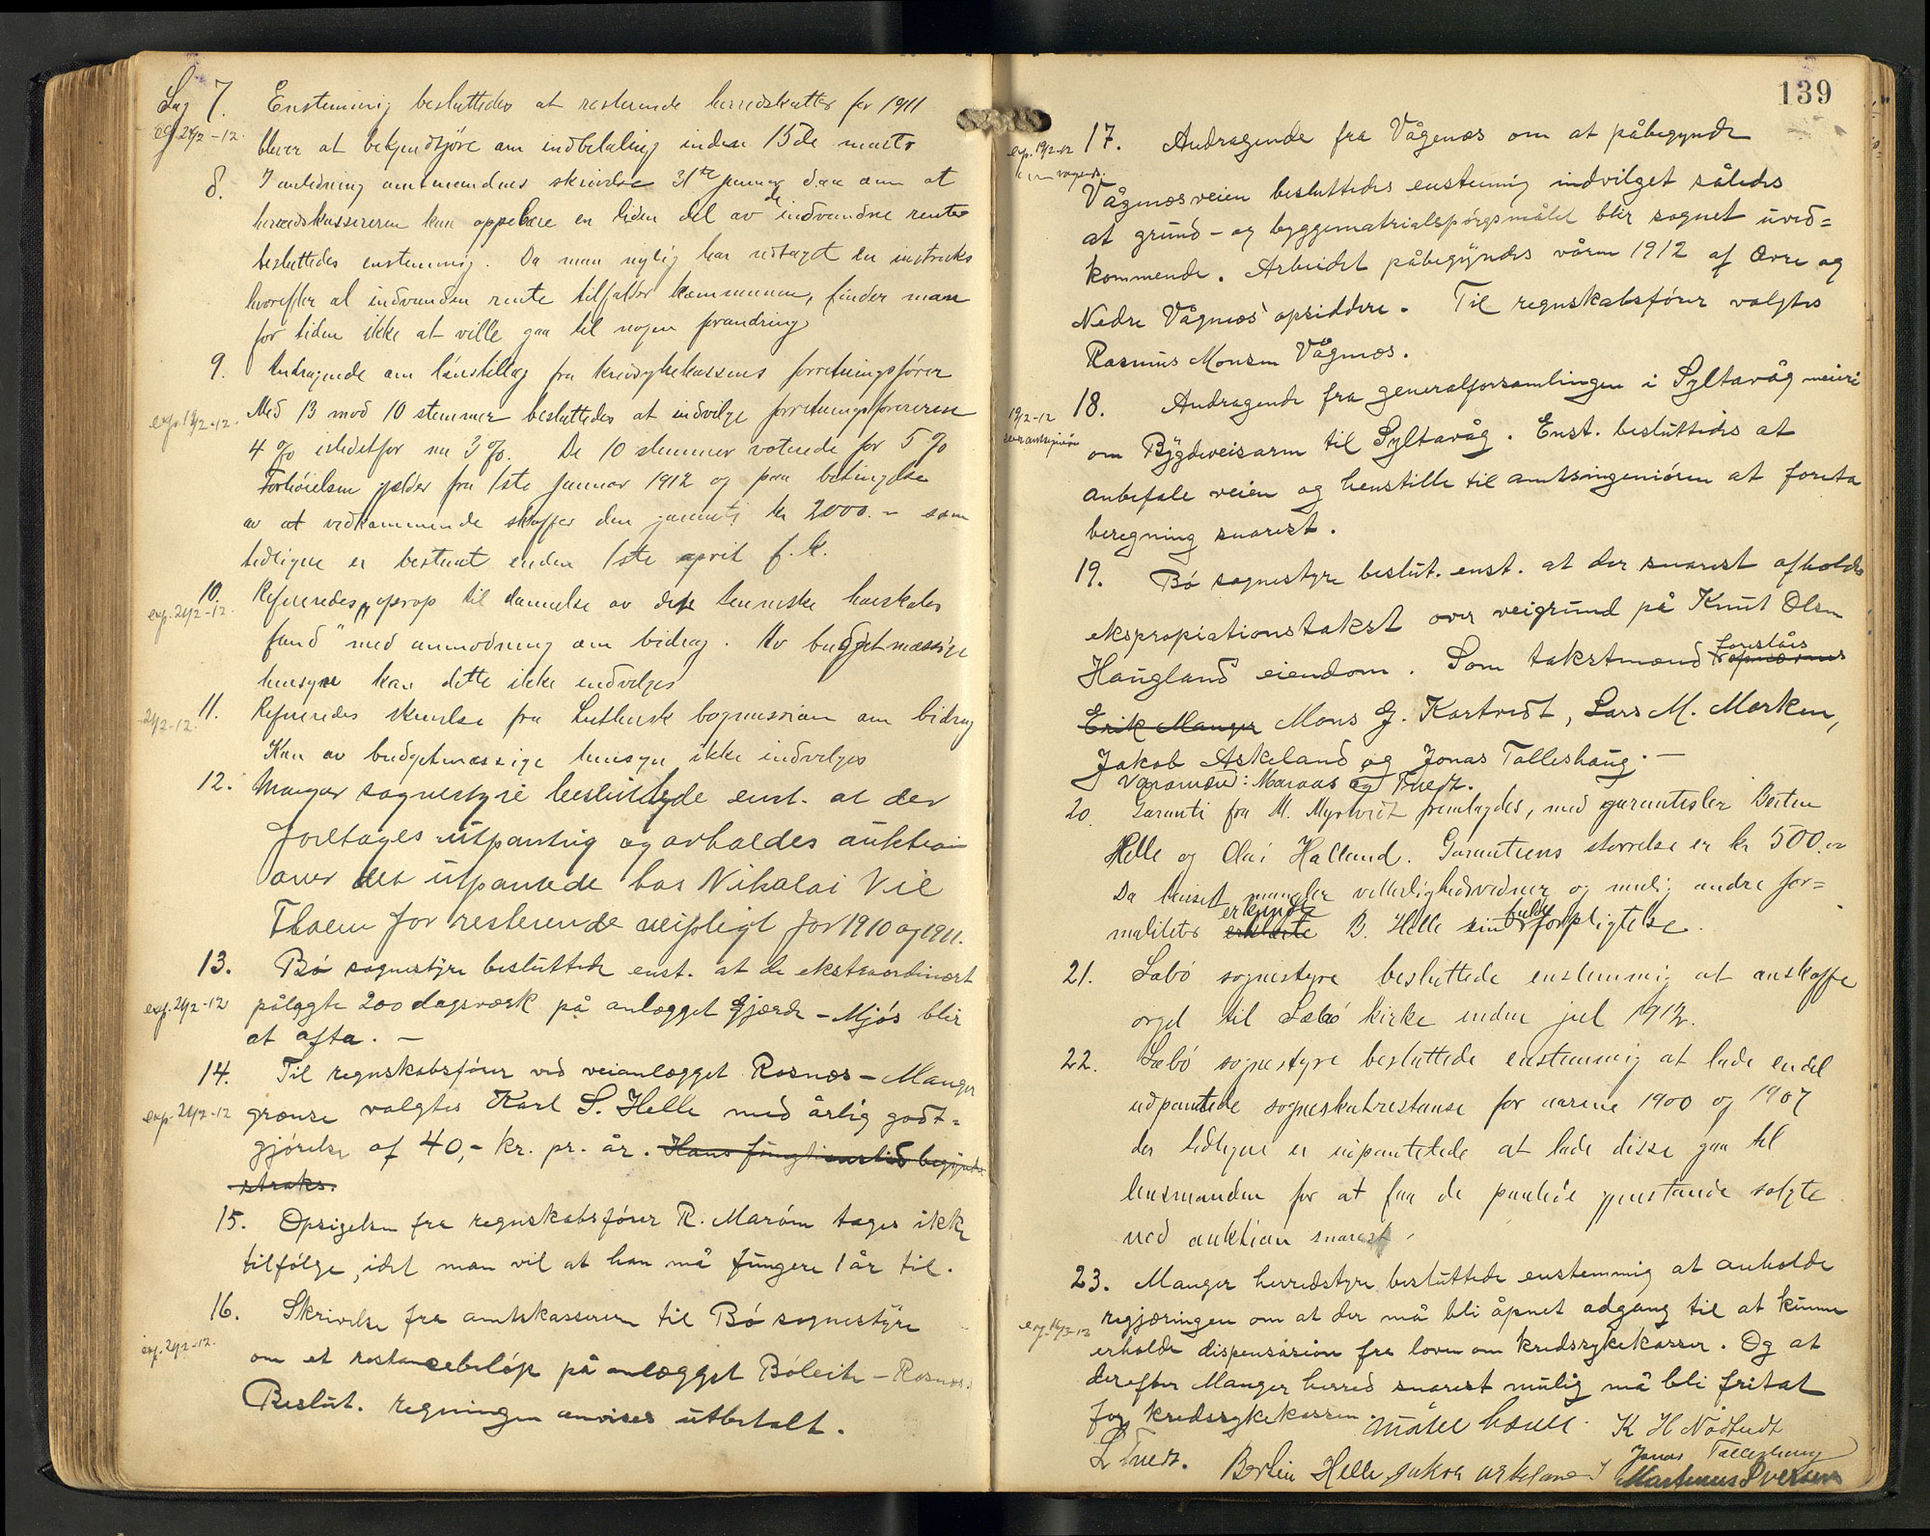 Sag 7. Enstemmig besluttedes at resterende herredskatter for 1911
exp. 24/2-12.
bliver at bekjendtgjøre om indbetaling inden 15de marts
8. I anledning amtmandens skrivelse 31te januar d.aa. om at
herredskassereren kan oppebære en liden del av de indvundne renter
besluttedes enstemmig. Da man nylig har vedtaget en instruks
hvorefter al indvunden rente tilfalder kommunen, finder man
for tiden ikke at ville gaa til nogen forandring
9. Andragende om lønstillæg fra kredssykekassens forretningsfører
exp. 19/2-12. Med 13 mod 10 stemmer besluttedes at indvilge forretningsføreren
4 % istedetfor nu 3 %. De 10 stemmer voterede for 5 %
Forhøielsen gjælder fra 1ste januar 1912 og paa betingelse
av at vedkommende skaffer den garanti kr 2000.- som
tidligere er bestemt inden 1ste april f. k.
10. Refereredes "oprop til dannelse av det lenniske
exp. 24/2-12.
fund" med anmodning om bidrag. Av budgetmæssige
hensyn kan dette ikke indvilges
11. Refereredes skrivelse fra Luthersk bogmission om bidrag
24/2-12.
Kan av budgetmæssige hensyn ikke indvilges
12. Manger sognestyre besluttede enst. at der
foretages utpantnig og avholdes auktion
over det utpantede hos Nikolai Vil
Thoem for resterende veipligt for 1910 og 1911.
13. Bø sognestyre besluttede enst. at de ekstraordinært
exp. 24/2-12 pålagte 200 dagsværk på anlægget Gjærde - Mjøs blir
at afta. —
14. Til regnskabsfører ved veianlægget Rosnæs - Manger
exp. 24/2-12 grænse valgtes Karl S. Helle med årlig godt-
gjørelse af 40,- kr. pr. år. Hans fungtionstid begynder
straks.
15. Opsigelsen fra regnskabsfører R. Marøm tages ikke
tilfølge, idet man vil at han må fungere 1 år til.
16. Skrivelse fra amtskassereren til Bø sognestyre
exp. 24/2-12.
om et restancebeløp på anlægget Bøleite - Rosnæs.
Beslut. regningen anvises utbetalt.
139
17. Andragende fra Vågenæs om at påbegynde
exp. 19/2-12
Vågenæsveien besluttedes enstemmig indvilget således
at grund- og byggematrialspørgsmålet blir sognet uved-
kommende. Arbeidet påbegyndes våren 1912 af Øvre og
Nedre Vågenæs' opsiddere. Til regnskabsfører valgtes
Rasmus Monsen Vågenæs.
18. Andragende fra generalforsamlingen i Syltavåg meieri
19/2-12
om Bygdeveisarm til Syltavåg. Enst. besluttedes at
anbefale veien og henstille til amtsingeniøren at foreta
beregning snarest.
19. Bø sognestyre beslut. enst. at der snarest afholdes
ekspropiationstakst over veigrund på Knut Olsen
Haugland eiendom. Som takstmænd foreslåes opnævnes
Erik Manger Mons J. Kartveit, Lars M. Marken,
Jakob Askeland og Jonas Talleshaug. —
Varamænd: Maraas og Tveit.
20. Garanti fra M. Myrtveit fremlagdes, med garantister Bertin
Helle og Olai Halland. Garantiens størrelse er kr 500.00
Da beviset mangler vitterlighedsvidner og mulig andre for-
maliteter erklærte erkjendte B. Helle sin fulde forpligtelse.
21. Sæbø sognestyre besluttede enstemmig at anskaffe
orgel til Sæbø kirke inden jul 1912.
22. Sæbø sognestyre besluttede enstemmig at lade endel
udpantede sogneskatrestanse for aarene 1900 og 1907
der tidligere er utpantetede at lade disse gaa til
lensmanden for at faa de pantede gjenstande solgte
ved auktion snarest.
23. Manger herredstyre besluttede enstemmig at anholde
regjæringen om at der må bli åpnet adgang til at kunne
exp. 16/3-12
erholde dispensasion fra loven om kredssykekasser. Og at
derefter Manger herred snarest mulig må bli fritat
for kredssykekassen.
K H Nødtvedt
L Tveit. Bertin Helle Jakob Askeland Jonas Talleshaug
Martinus Iversen